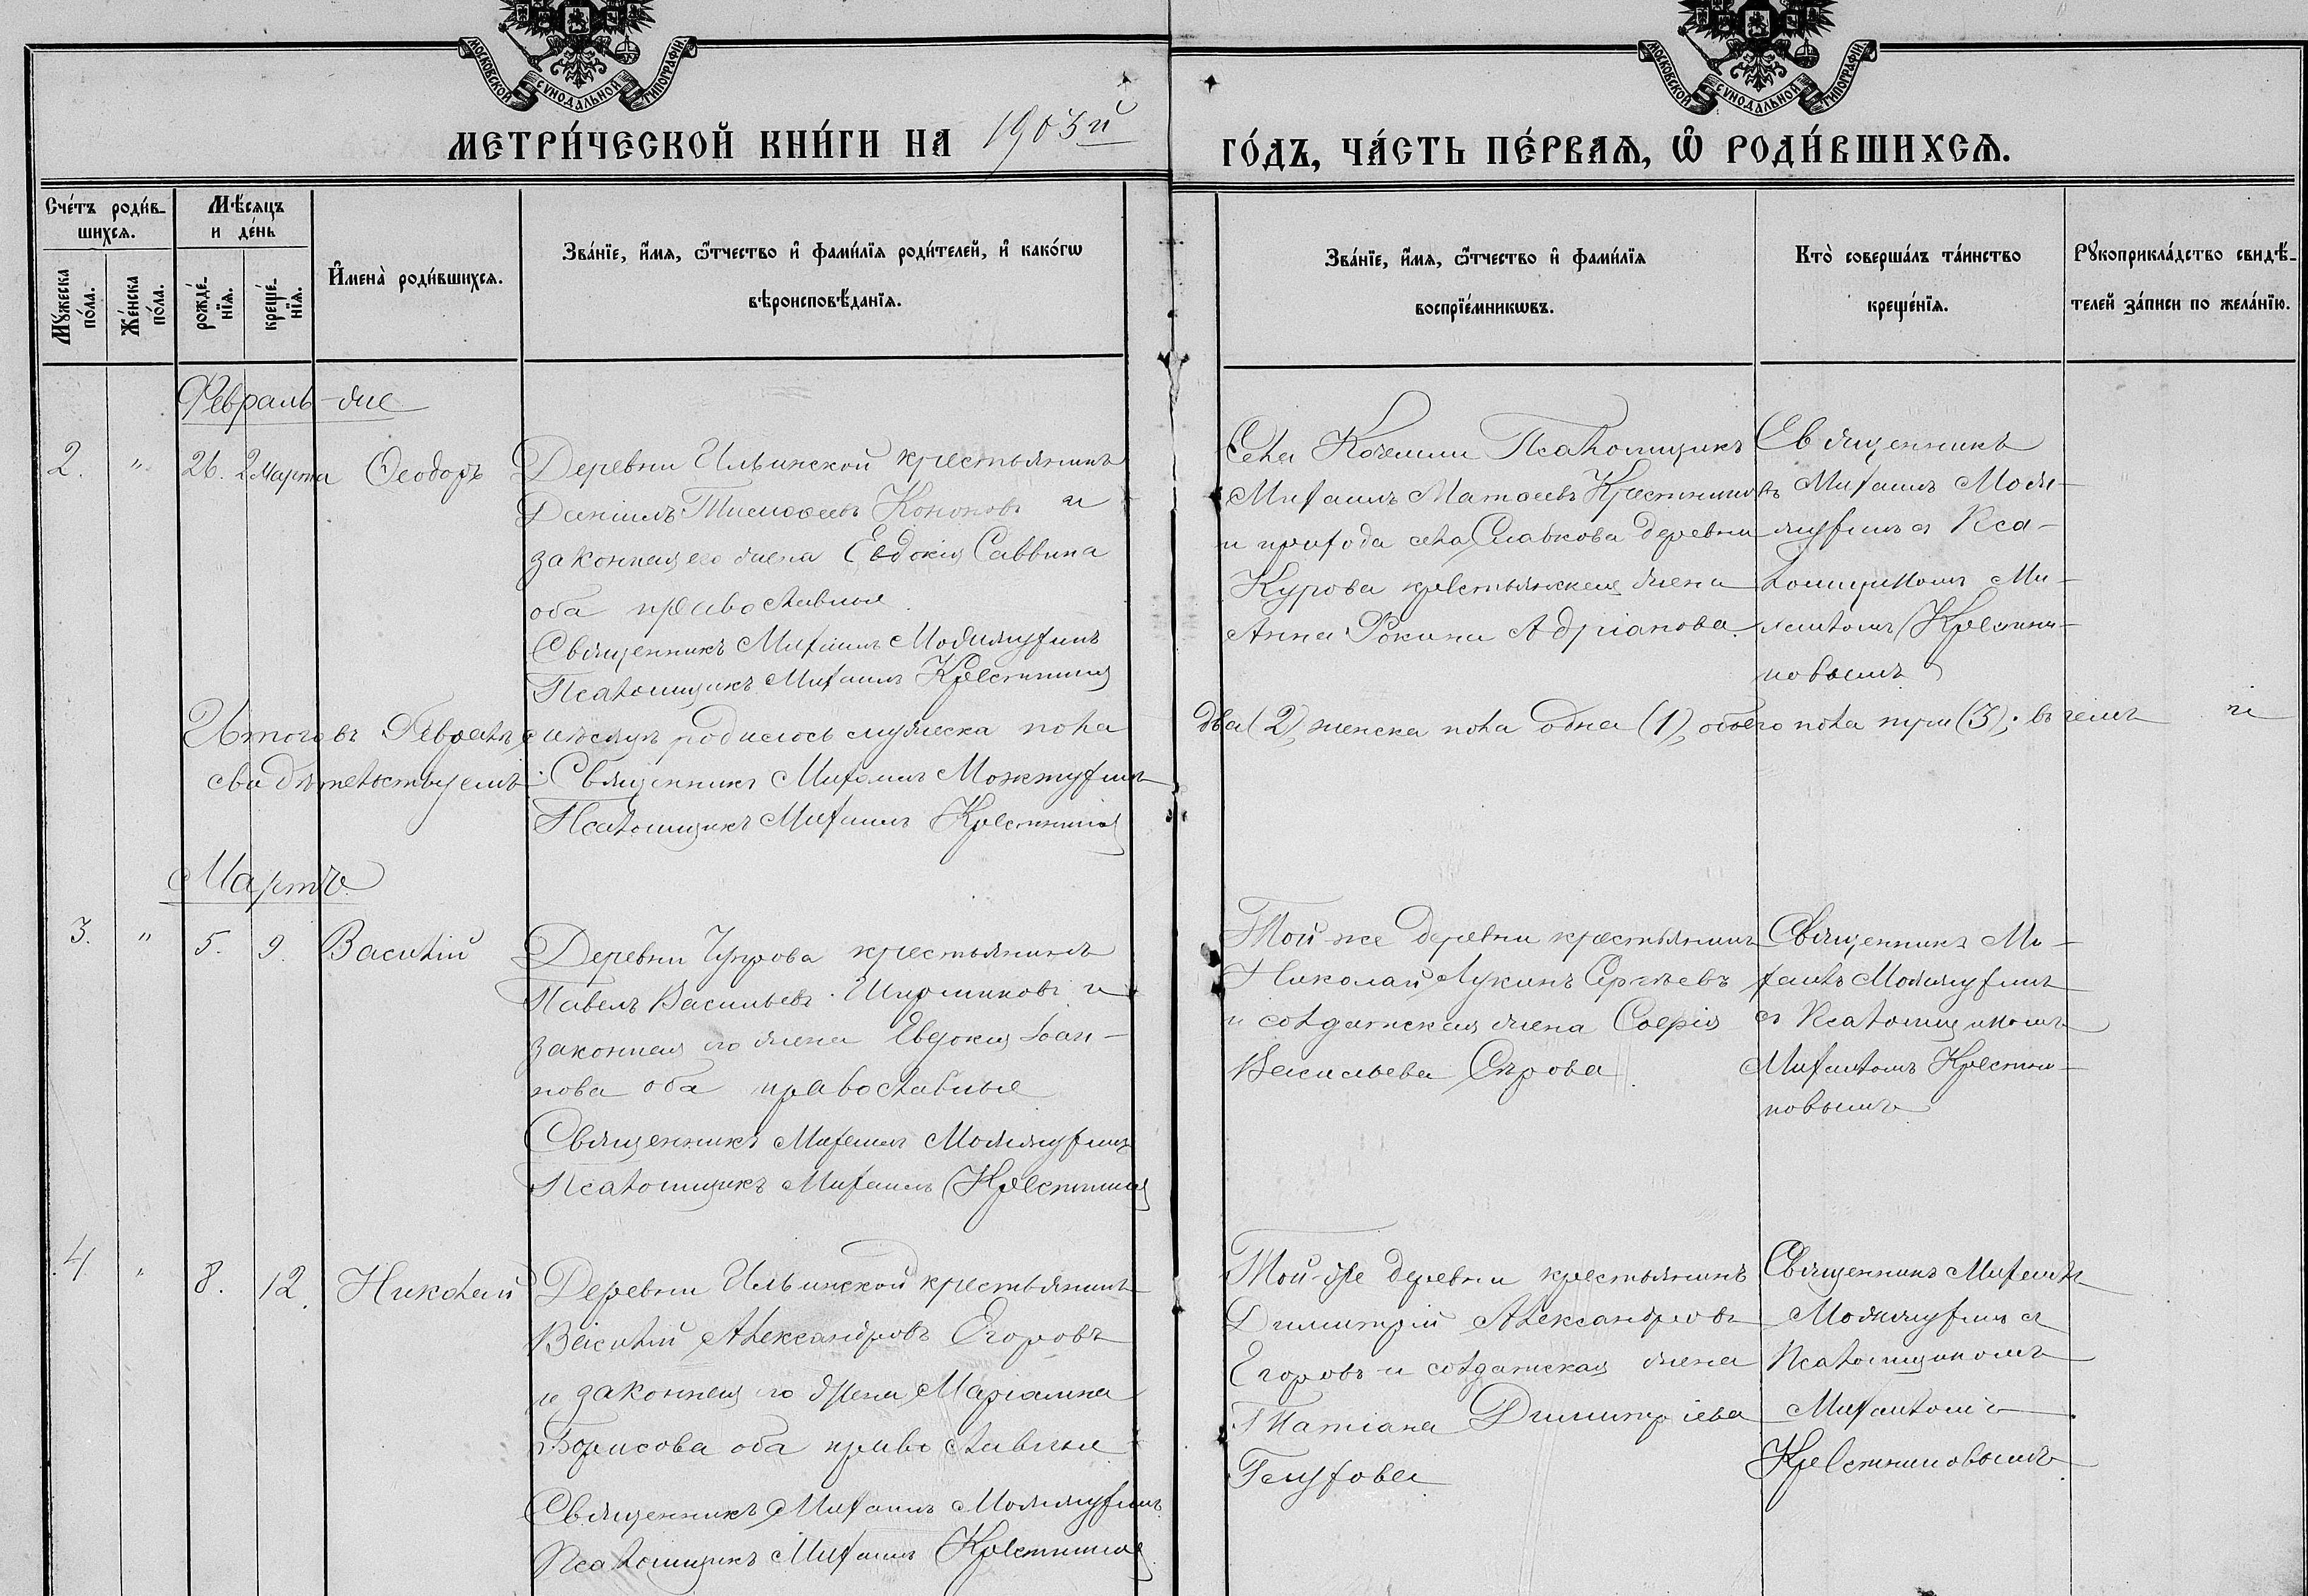 МОСКОВСКОЙ СѴНОДАЛЬНОЙ ТИПОГРАФІИ
МОСКОВСКОЙ СѴНОДАЛЬНОЙ ТИПОГРАФІИ
МЕТРИ́ЧЕСКОЙ КНИ́ГИ НА 1903й
ГО́ДЪ, ЧА́СТЬ ПЕ́РВАѦ, Ѽ РОДИ́ВШИХСѦ.
Сче́тъ роди́в-
шихсѧ.
Мꙋ́жеска
по́ла.
Же́нска
по́ла.
Мѣ́сѧцъ
и де́нь
рожде́-
нїѧ.
креще́-
нїѧ.
И҆мена̀ роди́вшихсѧ.
Зва́нїе, и҆́мѧ, ѻ҆́тчество и҆ фами́лїѧ роди́телей, и҆ како́гѡ
вѣроисповѣ́данїѧ.
Зва́нїе, и҆́мѧ, ѻ҆́тчество и҆ фами́лїѧ
воспрїе́мникѡвъ.
Кто̀ соверша́лъ та́инство
креще́нїѧ.
Рꙋкоприкла́дство свидѣ́-
телей за́писи по жела́нїю.
Февраль-же
2. " 26. 2 Марта Ѳеодоръ
Деревни Ильинской крестьянинъ
Даніилъ Тимоѳеевъ Кононовъ и
законная его жена Евдокія Саввина
оба православные
Священникъ Михаилъ Можжухинъ
Псаломщикъ Михаилъ Крестниковъ
Села Псаломщикъ
Михаилъ Матѳеевъ Крестниковъ
и прихода села Славкова деревни
Курова крестьянская жена
Анна Фокина Адріанова.
Священникъ
Михаилъ Можж-
жухинъ съ Пса-
ломщикомъ Ми-
хаиломъ Крестни-
ковымъ
Итого въ Февралѣ мѣсяцѣ родилось мужеска пола
два (2), женска пола одна (1), обоего пола три (3); въ чемъ и
свидѣтельствуемъ: Священникъ Михаилъ Можжухинъ
Псаломщикъ Михаилъ Крестниковъ
Мартъ
3. " 5. 9. Василій
Деревни Чупрова крестьянинъ
Павелъ Васильевъ и
законная его жена Евдокія Іоан-
нова оба православные
Священникъ Михаилъ Можжухинъ
Псаломщикъ Михаилъ Крестниковъ
Той-же деревни крестьянинъ
Николай Лукинъ Сергѣевъ
и солдатская жена Софія
Васильева Сѣрова.
Священникъ Ми-
хаилъ Можжухинъ
съ Псаломщикомъ
Михаиломъ Крестни-
ковымъ
4. " 8. 12. Николай
Деревни Ильинской крестьянинъ
Василій Александровъ Егоровъ
и законная его жена Маріамна
Борисова оба православные
Священникъ Михаилъ Можжухинъ
Псаломщикъ Михаилъ Крестниковъ
Той-же деревни крестьянинъ
Димитрій Александровъ
Егоровъ и солдатская жена
Татіана Димитріева
Священникъ Михаилъ
Можжухинъ съ
Псаломщикомъ
Михаиломъ
Крестниковымъ